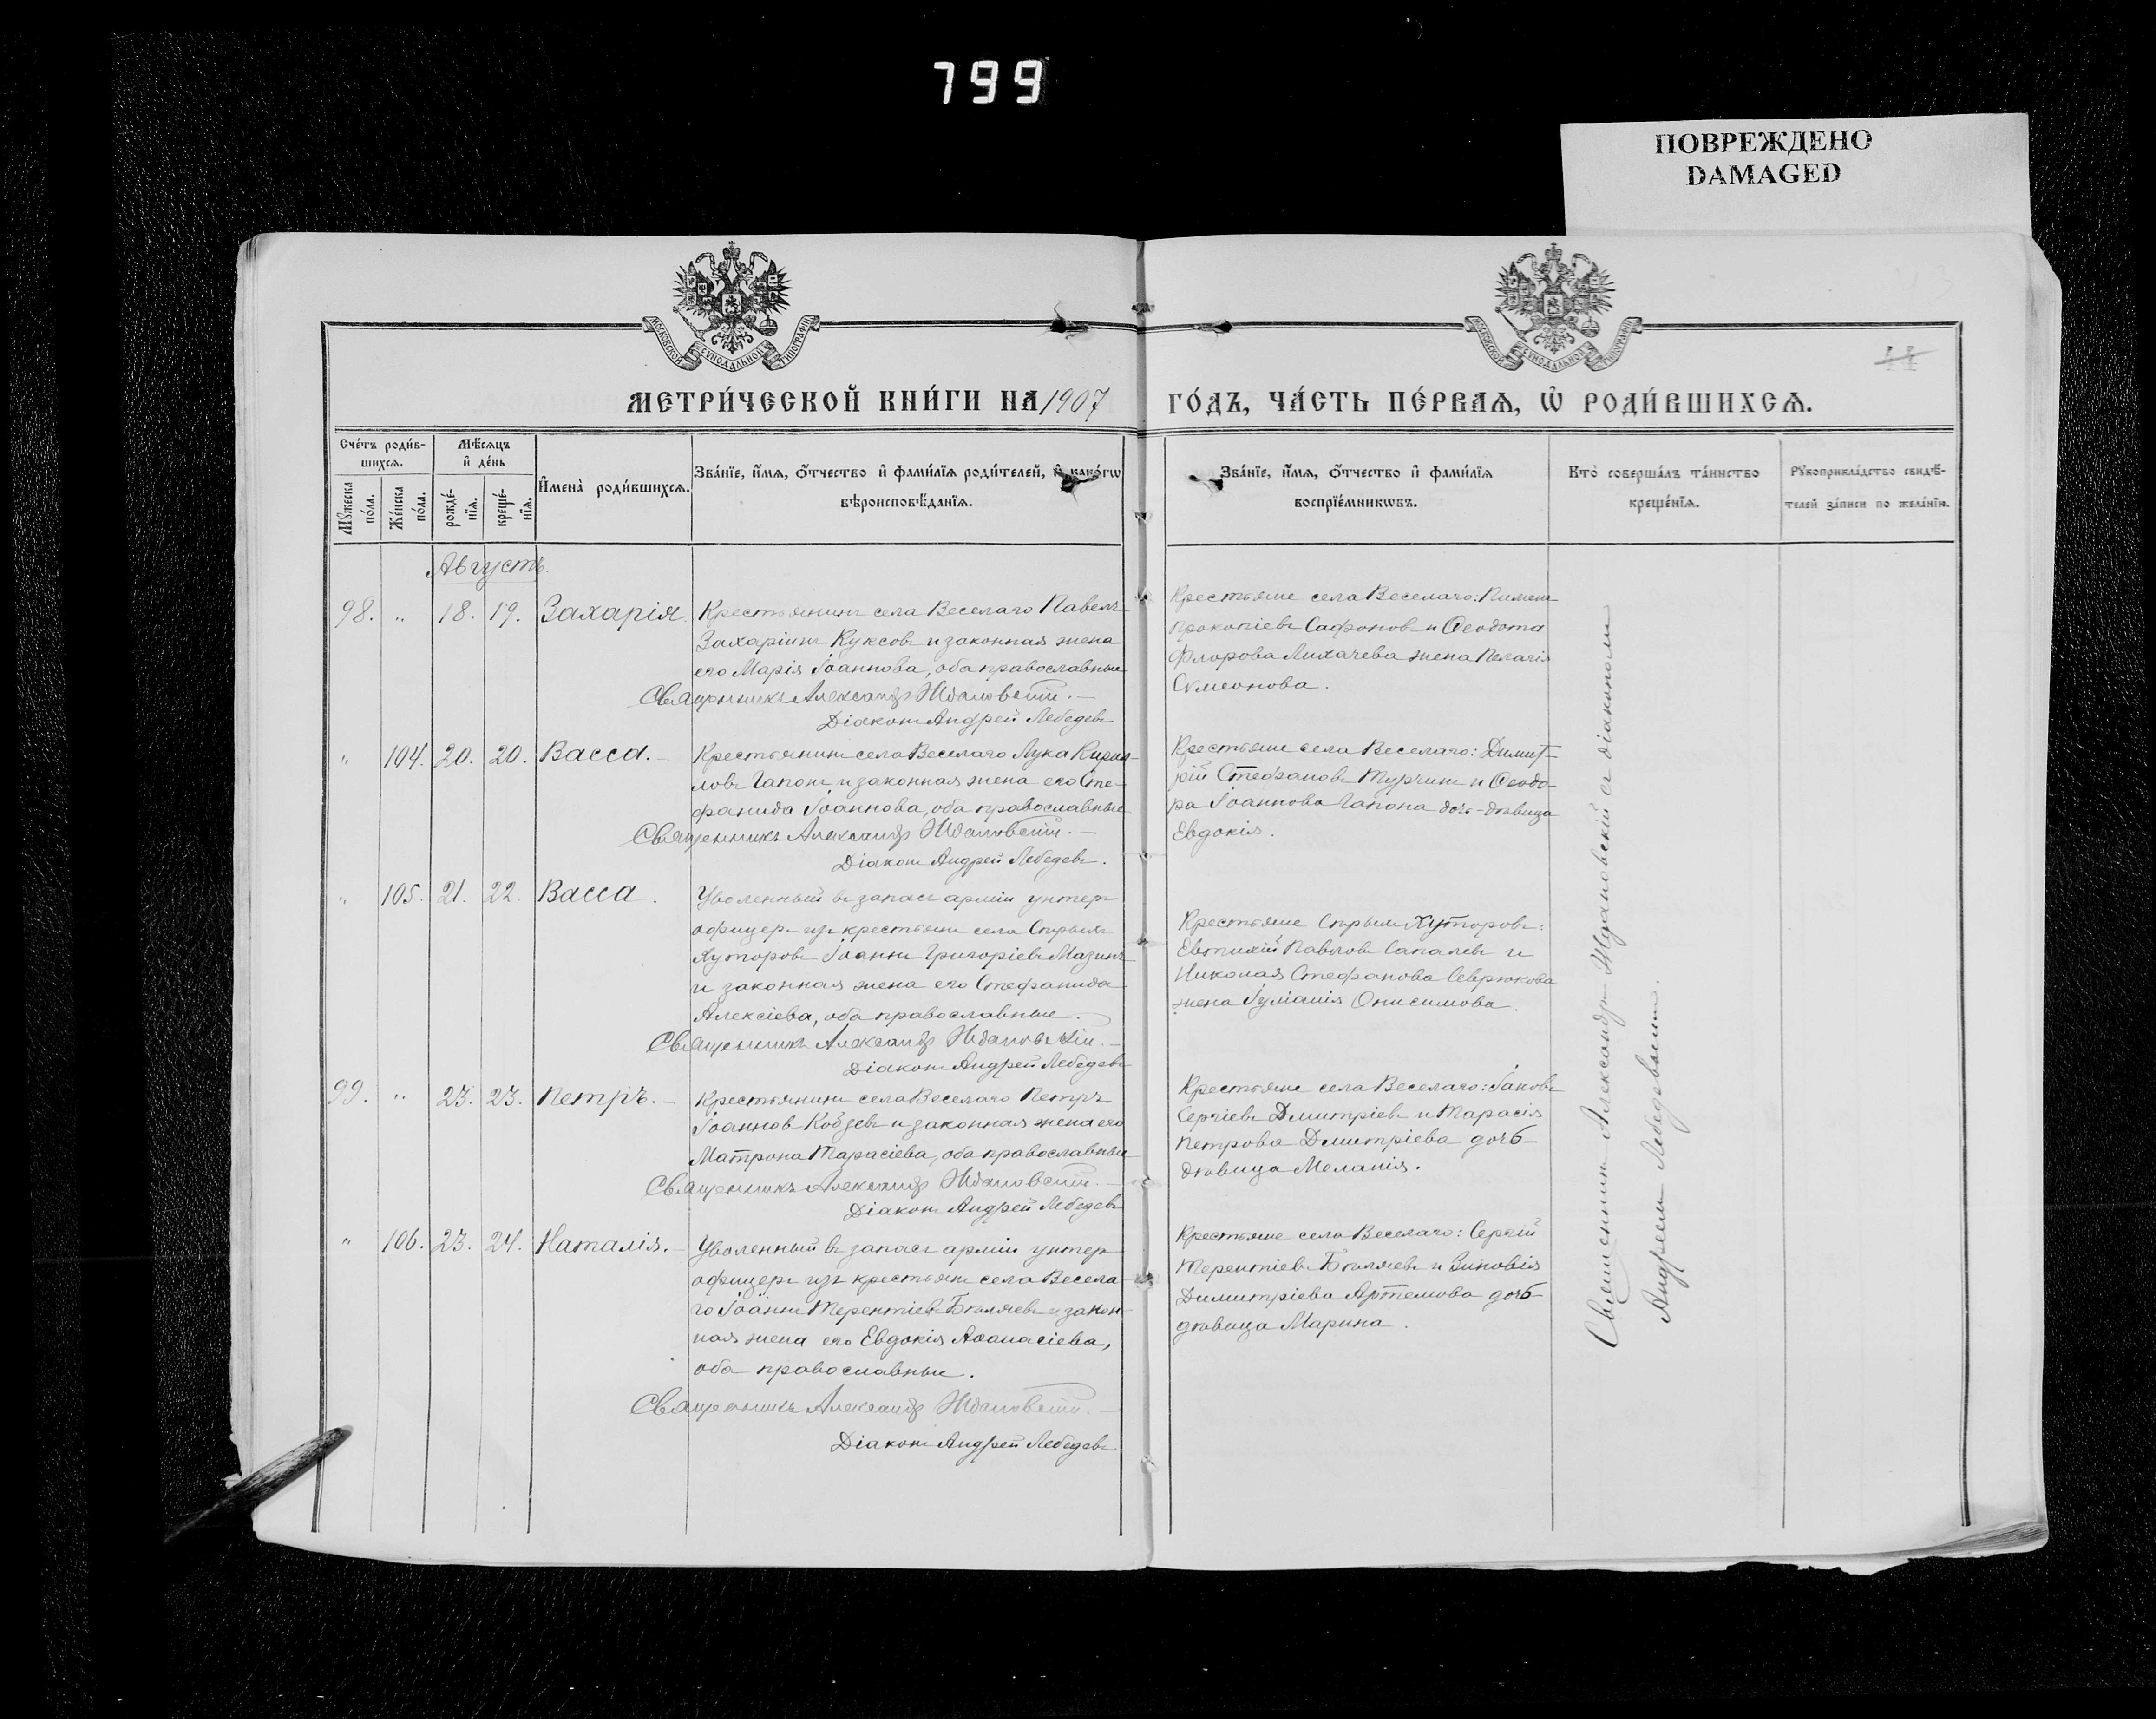 799
ПОВРЕЖДЕНО
DAMAGED
МОСКОВСКОЙ СѴНОДАЛЬНОЙ ТИПОГРАФІИ
МОСКОВСКОЙ СѴНОДАЛЬНОЙ ТИПОГРАФІИ
МЕТРИ́ЧЕСКОЙ КНИ́ГИ НА 1907 ГО́ДЪ, ЧА́СТЬ ПЕ́РВАѦ, Ѡ҆ РОДИ́ВШИХСѦ.
Сче́тъ роди́в-
шихсѧ.
Мѣ́сѧцъ
и҆ де́нь
Мꙋ́жеска
по́ла.
Же́нска
по́ла.
рожде́-
нїѧ.
креще́-
нїѧ.
И҆мена̀ роди́вшихсѧ.
Зва́нїе, и҆́мѧ, ѻ҆́тчество и҆ фами́лїѧ роди́телей, и҆ како́гѡ
вѣроисповѣ́данїѧ.
Зва́нїе, и҆́мѧ, ѻ҆́тчество и҆ фами́лїѧ
воспрїе́мникѡвъ.
Кто̀ соверша́лъ та́инство
креще́нїѧ.
Рꙋкоприкла́дство свидѣ́-
телей за́писи по жела́нїю.
Августъ.
98. " 18. 19. Захарія.
Крестьянинъ села Веселаго Павелъ
Захаріинъ Куксовъ и законная жена
его Марія Іоаннова, оба православные
Священникъ Александръ Ждановскій.
Діаконъ Андрей Лебедевъ
Крестьяне села Веселаго: Пименъ
Прокопіевъ Сафоновъ и Ѳеодота
Флорова Лихачева жена Пелагія
Сѵмеонова.
" 104. 20. 20. Васса.
Крестьянинъ села Веселаго Лука Кирил-
ловъ Гапонъ и законная жена его Сте-
фанида Іоаннова, оба православные
Священникъ Александръ Ждановскій.
Діаконъ Андрей Лебедевъ.
Крестьяне села Веселаго: Димит-
рій Стефановъ Турчинъ и Ѳеодо-
ра Іоаннова Гапона дочь-дѣвица
Евдокія.
" 105. 21. 22. Васса.
Уволенный въ запасъ арміи унтеръ
офицеръ изъ крестьянъ села
Хуторовъ Іоаннъ Григоріевъ Мазинъ
и законная жена его Стефанида
Алексіева, оба православные.
Священникъ Александръ Ждановскій.
Діаконъ Андрей Лебедевъ
Крестьяне Хуторовъ:
Евтихій Павловъ Сапалевъ и
Николая Стефанова Севрюкова
жена Іуліанія Онисимова.
99. " 23. 23. Петръ.
Крестьянинъ села Веселаго Петръ
Іоанновъ Кобзевъ и законная жена его
Матрона Тарасіева, оба православные
Священникъ Александръ Ждановскій.
Діаконъ Андрей Лебедевъ
Крестьяне села Веселаго: Іаковъ
Сергіевъ Дмитріевъ и Тарасія
Петрова Дмитріева дочь
дѣвица Меланія.
" 106. 23. 24. Наталія.
Уволенный въ запасъ арміи унтеръ
офицеръ изъ крестьянъ села Весела
го Іоаннъ Терентіевъ Бѣляевъ и закон-
ная жена его Евдокія Аѳанасіева,
оба православные.
Священникъ Александръ Ждановскій.
Діаконъ Андрей Лебедевъ
Крестьяне села Веселаго: Сергій
Терентіевъ Бѣляевъ и Зиновія
Димитріева Артемова дочь
дѣвица Марина.
Священникъ Александръ Ждановскій съ діакономъ
Андреемъ Лебедевымъ.